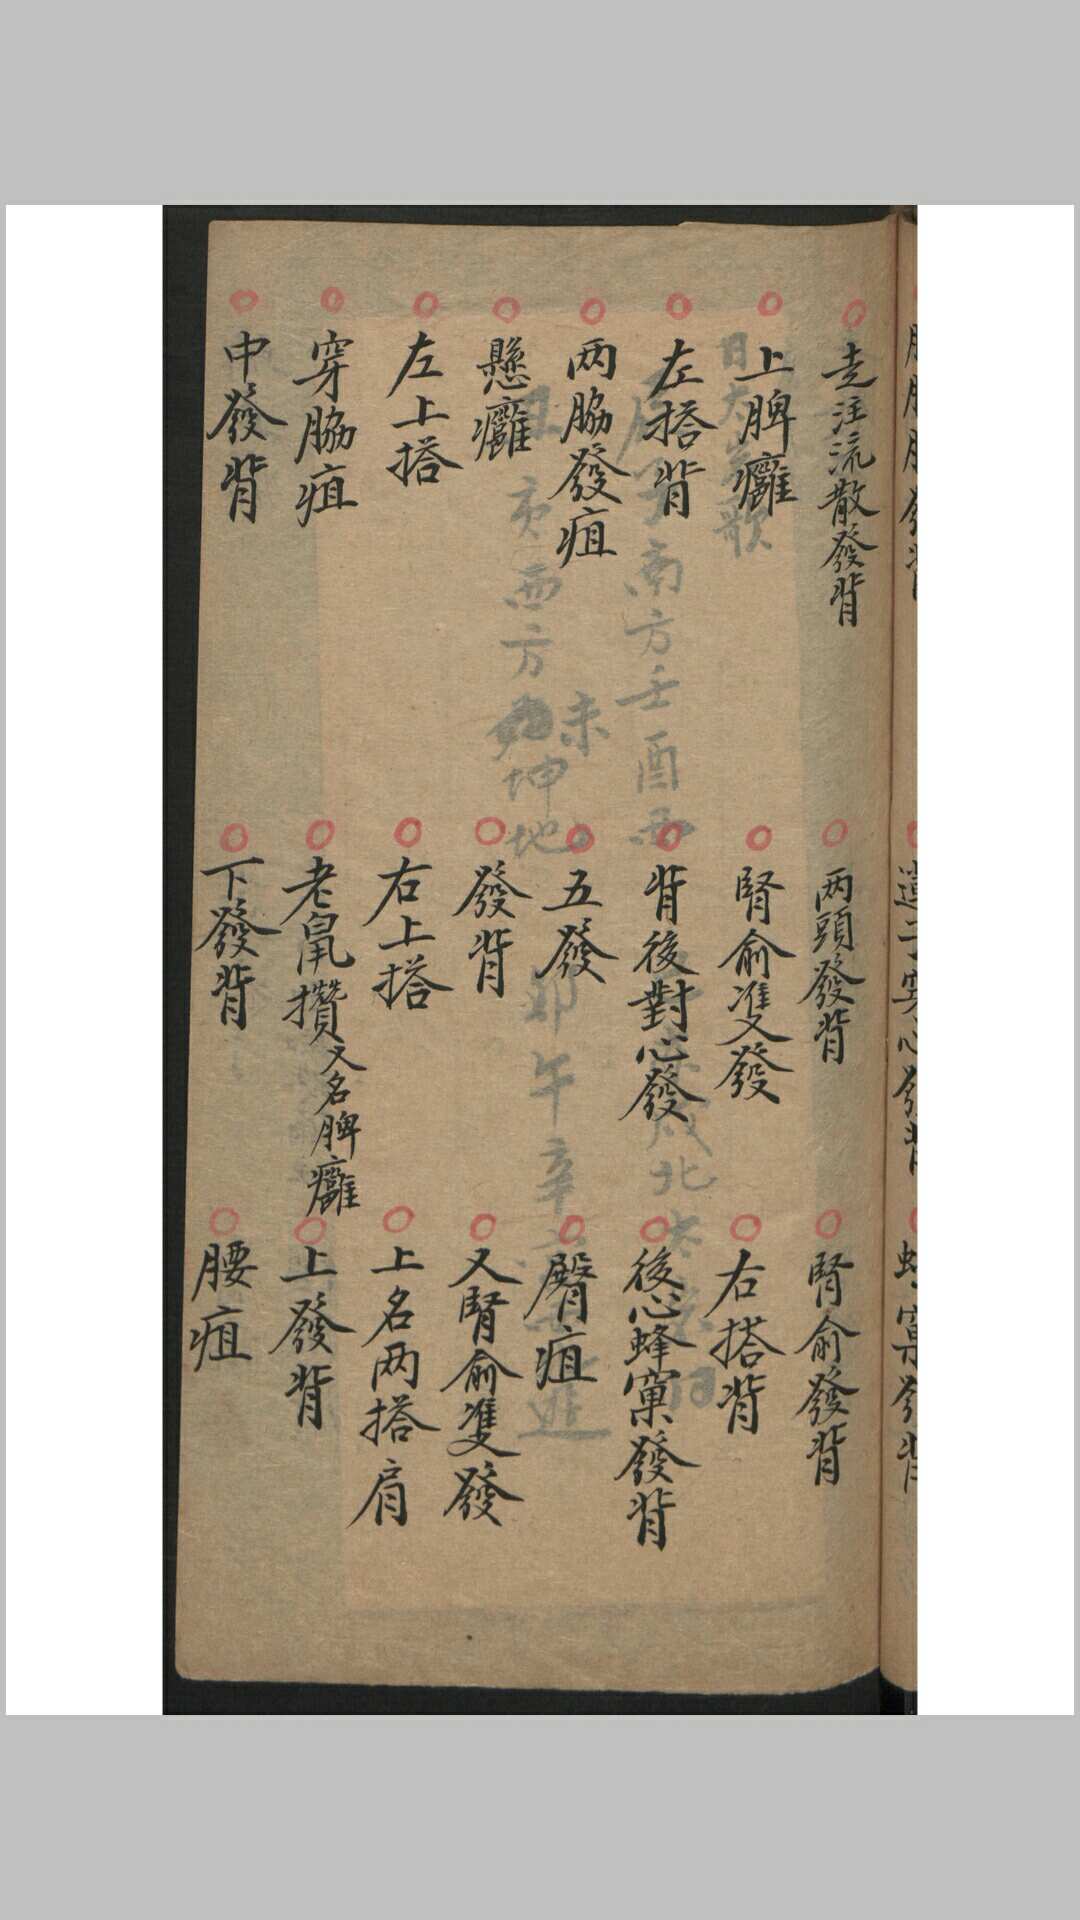 走注流散發背
两頭發背
腎俞發背
上脾癰
腎俞雙發
右搭背
左搭背
背後對心發
後心蜂窠發背
两脇發疽
五發
臀疽
懸癰
發背
又腎俞雙發
左上搭
右上搭
上名两搭肩
穿脇疽
老鼠攢又名脾癰
上發背
中發背
下發背
腰疽